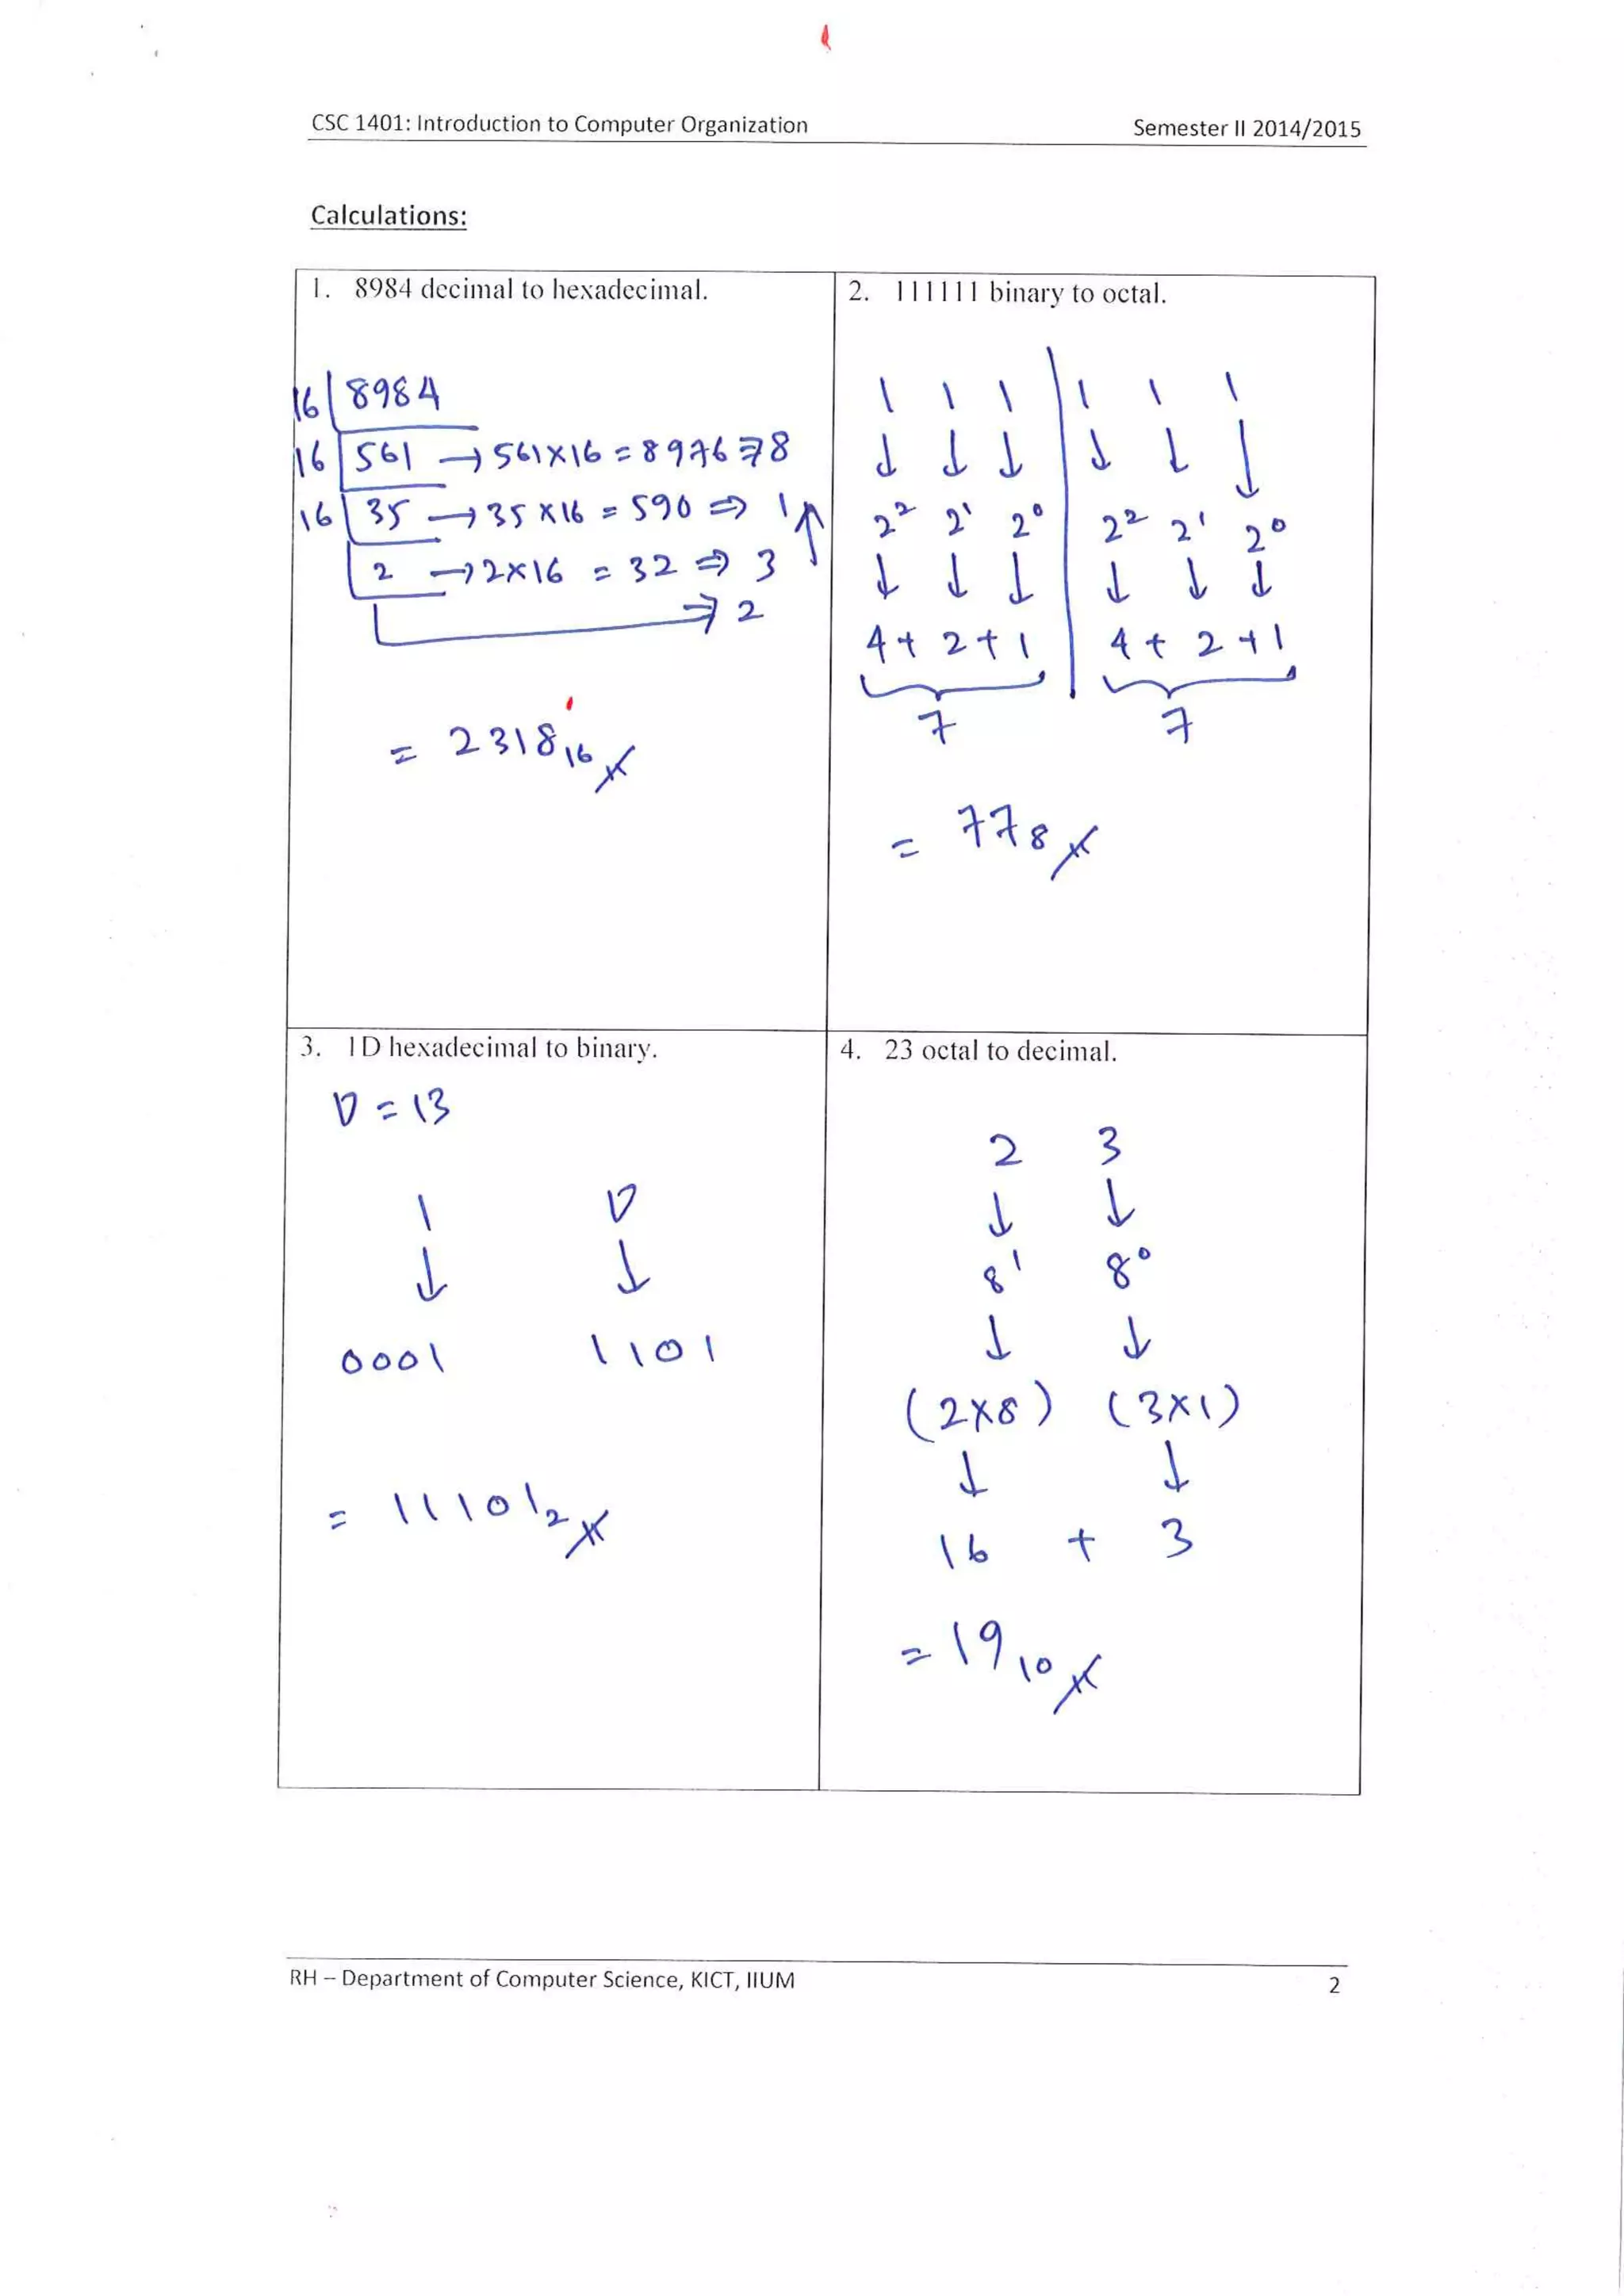 CSC 1401: Introduction to Computer Organization Semester II 2014/2015
Calculations:
1. 8984 decimal to hexadecimal.
16 8984
16 561 → 561×16 = 8976 ⇒ 8
16 35 → 35×16 = 590 ⇒ 1
2 → 2×16 = 32 ⇒ 3
⇒ 2
= 2318₁₆
2. 111111 binary to octal.
1 1 1 | 1 1 1
↓ ↓ ↓ ↓ ↓ ↓
2² 2¹ 2⁰ 2² 2¹ 2⁰
↓ ↓ ↓ ↓ ↓ ↓
4 + 2 + 1 4 + 2 + 1
7 7
= 77₈
3. 1D hexadecimal to binary.
D = 13
1 D
↓ ↓
0001 1101
= 11101₂
4. 23 octal to decimal.
2 3
↓ ↓
8¹ 8⁰
↓ ↓
(2×8) (3×1)
↓ ↓
16 + 3
= 19₁₀
RH – Department of Computer Science, KICT, IIUM 2